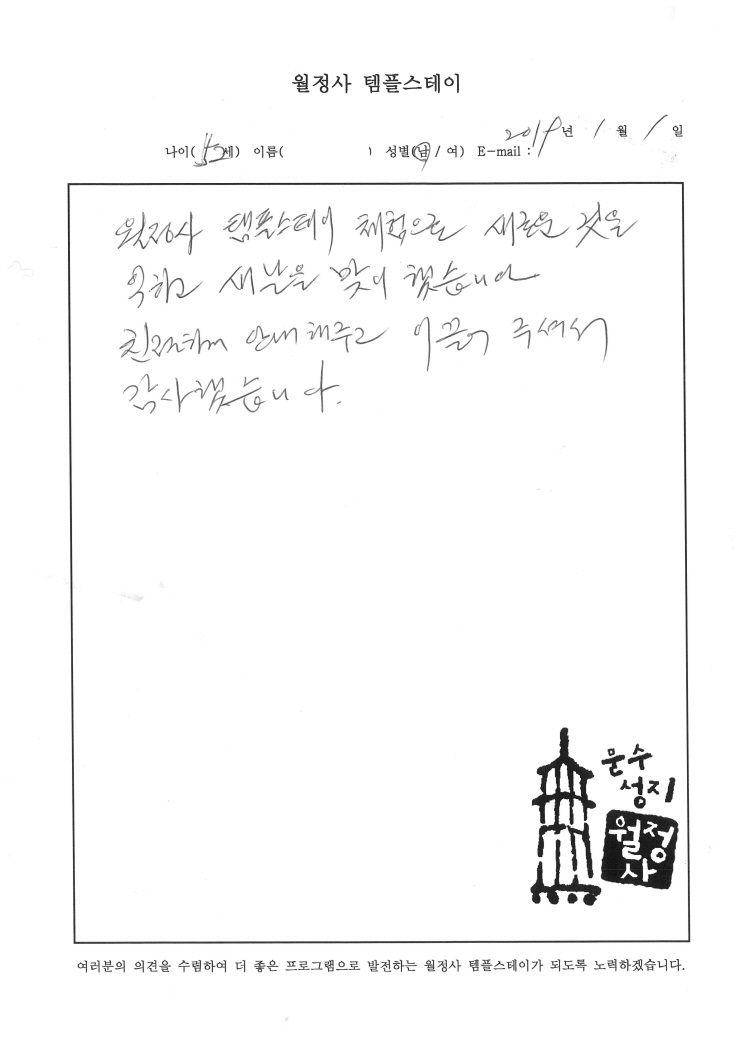 월정사 템플스테이
2019년 1월 1일
나이( 세) 이름( ) 성별(남/여) E-mail :
월정사 템플스테이 체험으로 새로운 것을
익히고 새날을 맞이 했습니다
친절하게 안내해주고 이끌어 주셔서
감사했습니다.
문수
성지
월정
사
여러분의 의견을 수렴하여 더 좋은 프로그램으로 발전하는 월정사 템플스테이가 되도록 노력하겠습니다.